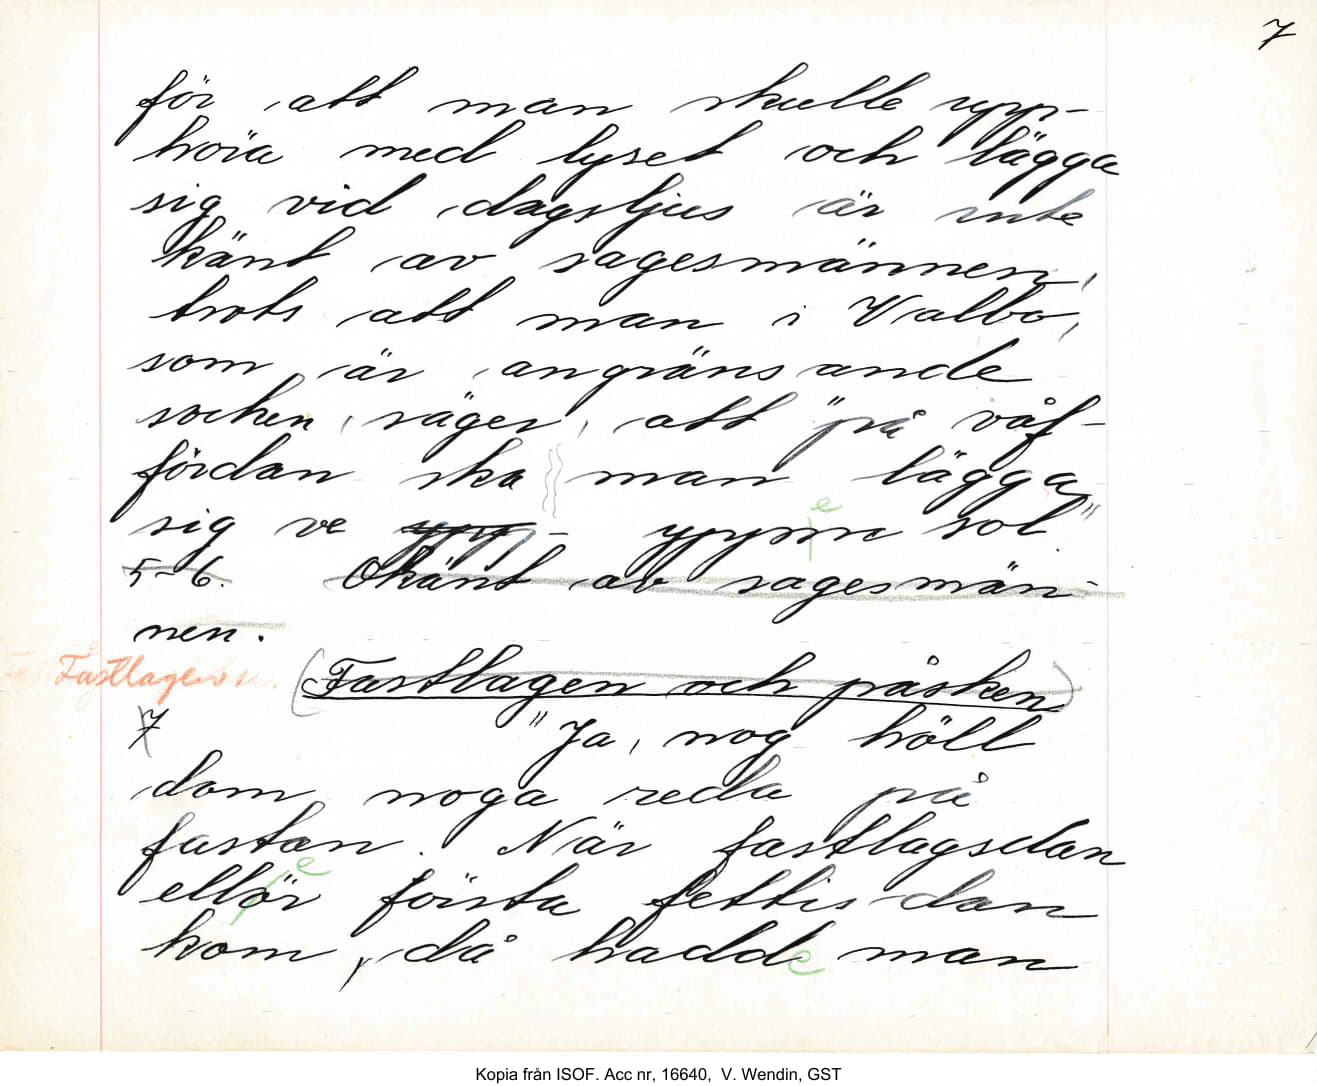 7
för att man skulle upp-
höra med lyset och lägga
sig vid dagsljus är inte
känt av sagesmännen,
trots att man i Valbo,
som är angränsande
socken, säger, att "på våf-
fördan ska man lägga
sig ve - yppne sol"
5-6. Okänt av sagesmän-
nen.
Fastlagen
(Fastlagen och påsken)
7 "Ja, nog höll
dom noga reda på
fastan. När fastlagsdan
eller första fettisdan
kom, då hadde man
Kopia från ISOF. Acc nr, 16640, V. Wendin, GST